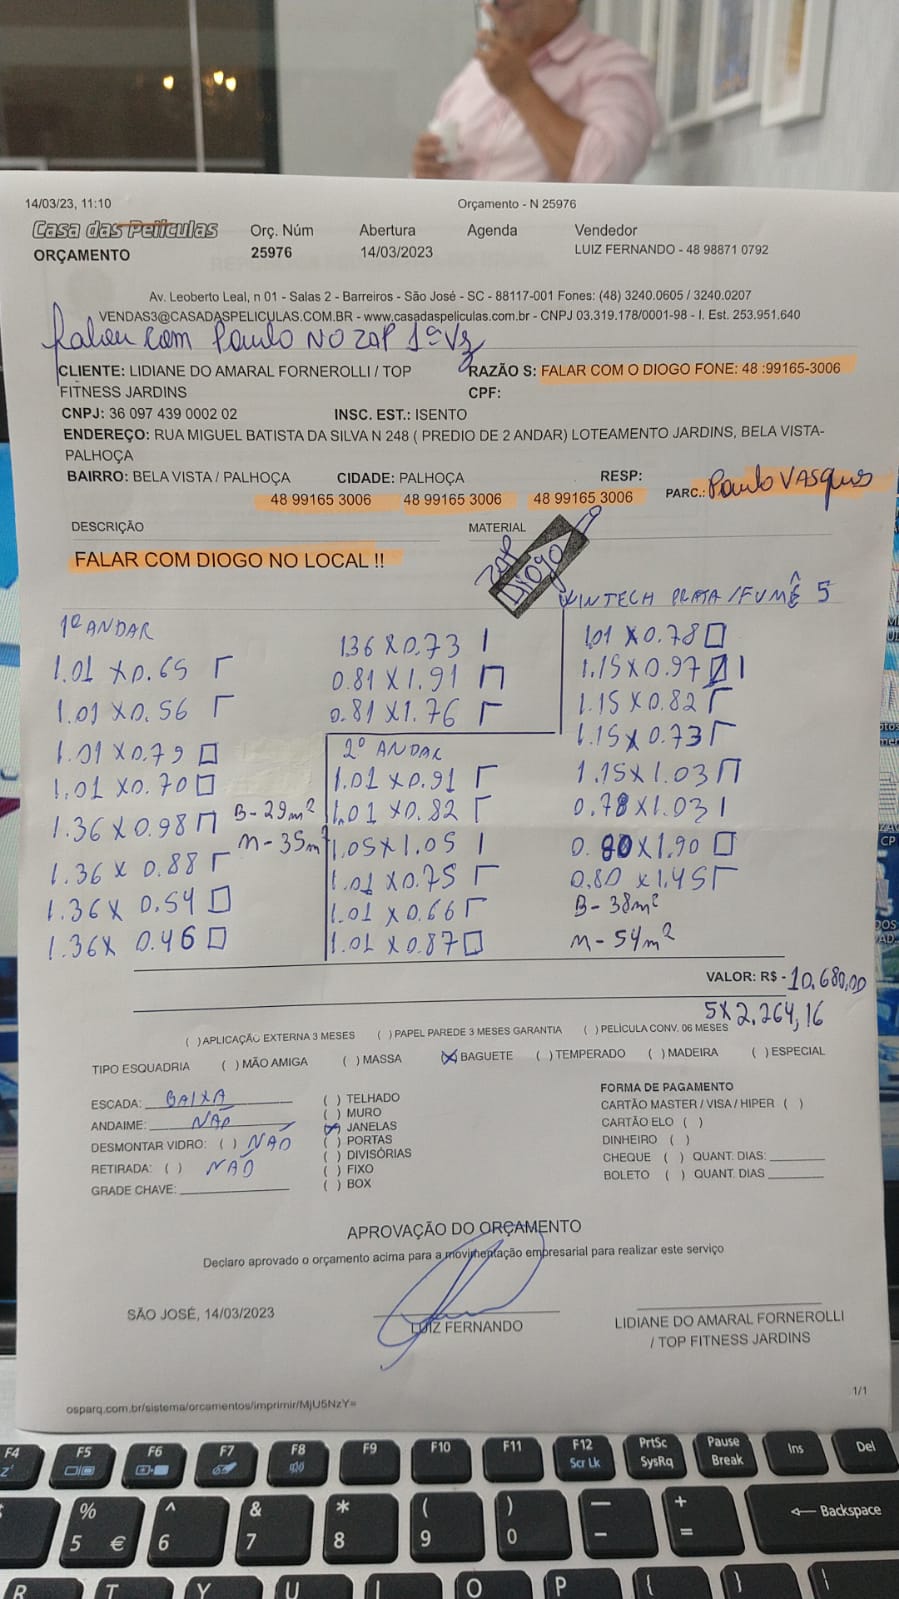 14/03/23, 11:10
Orçamento - N 25976
Casa das Películas
ORÇAMENTO
Orç. Núm
25976
Abertura
14/03/2023
Agenda
Vendedor
LUIZ FERNANDO - 48 98871 0792
Av. Leoberto Leal, n 01 - Salas 2 - Barreiros - São José - SC - 88117-001 Fones: (48) 3240.0605 / 3240.0207
VENDAS3@CASADASPELICULAS.COM.BR - www.casadaspeliculas.com.br - CNPJ 03.319.178/0001-98 - I. Est. 253.951.640
falou com Paulo NO ZAP 1ª Vz
CLIENTE: LIDIANE DO AMARAL FORNEROLLI / TOP
FITNESS JARDINS
RAZÃO S: FALAR COM O DIOGO FONE: 48 :99165-3006
CPF:
CNPJ: 36 097 439 0002 02
INSC. EST.: ISENTO
ENDEREÇO: RUA MIGUEL BATISTA DA SILVA N 248 ( PREDIO DE 2 ANDAR) LOTEAMENTO JARDINS, BELA VISTA-
PALHOÇA
BAIRRO: BELA VISTA / PALHOÇA
CIDADE: PALHOÇA
RESP:
48 99165 3006
48 99165 3006
48 99165 3006
PARC.: Paulo VASques
DESCRIÇÃO
MATERIAL
FALAR COM DIOGO NO LOCAL !!
ZAP
Diogo
WINTECH PRATA / FUMÊ 5
1º ANDAR
1.01 X 0.65
1.01 X 0.56
1.01 X 0.79
1.01 X 0.70
1.36 X 0.98
1.36 X 0.88
1.36 X 0.54
1.36 X 0.46
B - 29m²
M - 35m²
1.36 X 0.73
0.81 X 1.91
0.81 X 1.76
2º ANDAR
1.01 X 0.91
1.01 X 0.82
1.05 X 1.05
1.01 X 0.75
1.01 X 0.66
1.01 X 0.87
1.01 X 0.78
1.15 X 0.97
1.15 X 0.82
1.15 X 0.73
1.15 X 1.03
0.78 X 1.03
0.80 X 1.90
0.80 X 1.45
B - 38m²
M - 54m²
VALOR: R$ - 10.680,00
5 X 2.264,16
( ) APLICAÇÃO EXTERNA 3 MESES ( ) PAPEL PAREDE 3 MESES GARANTIA ( ) PELÍCULA CONV. 06 MESES
TIPO ESQUADRIA ( ) MÃO AMIGA ( ) MASSA (X) BAGUETE ( ) TEMPERADO ( ) MADEIRA ( ) ESPECIAL
ESCADA: BAIXA
ANDAIME: NÃO
DESMONTAR VIDRO: ( ) NÃO
RETIRADA: ( ) NÃO
GRADE CHAVE:
( ) TELHADO
( ) MURO
(X) JANELAS
( ) PORTAS
( ) DIVISÓRIAS
( ) FIXO
( ) BOX
FORMA DE PAGAMENTO
CARTÃO MASTER / VISA / HIPER ( )
CARTÃO ELO ( )
DINHEIRO ( )
CHEQUE ( ) QUANT. DIAS:
BOLETO ( ) QUANT. DIAS
APROVAÇÃO DO ORÇAMENTO
Declaro aprovado o orçamento acima para a movimentação empresarial para realizar este serviço
SÃO JOSÉ, 14/03/2023
LUIZ FERNANDO
LIDIANE DO AMARAL FORNEROLLI
/ TOP FITNESS JARDINS
1/1
osparq.com.br/sistema/orcamentos/imprimir/MjU5NzY=
F4 F5 F6 F7 F8 F9 F10 F11 F12 Scr Lk PrtSc SysRq Pause Break Ins Del
% 5 € ^ 6 & 7 * 8 ( 9 ) 0 — - + = Backspace
R T Y U I O P { }